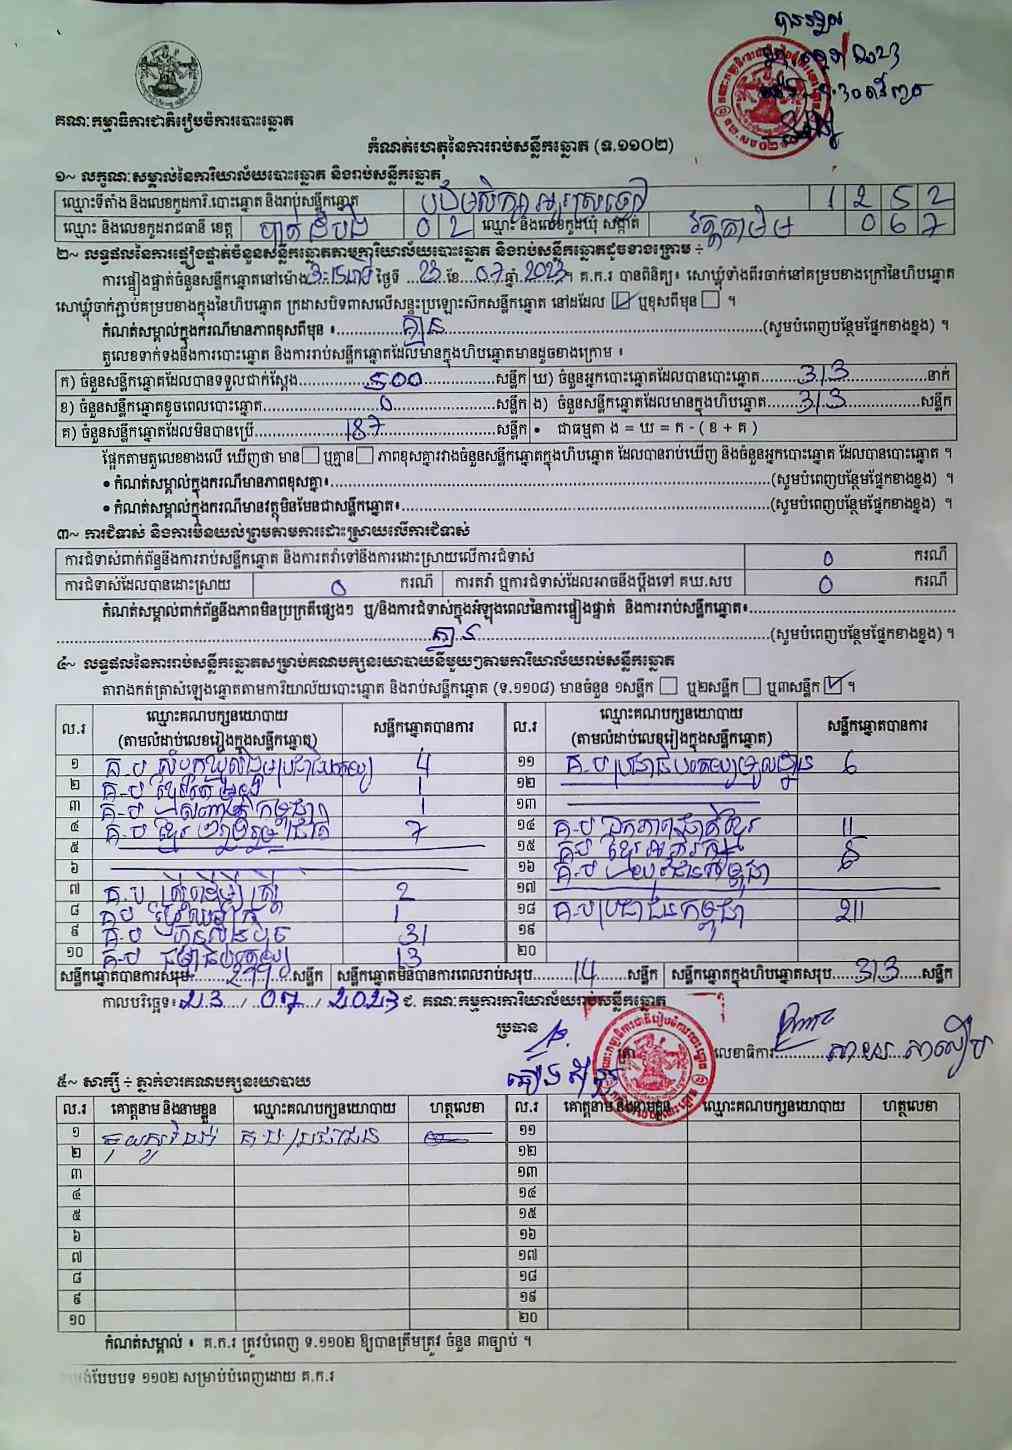 គណៈកម្មាធិការជាតិរៀបចំការបោះឆ្នោត
កំណត់ហេតុនៃការរាប់សន្លឹកឆ្នោត (ទ.១១០២)
១~ លក្ខណៈសម្គាល់នៃការិយាល័យបោះឆ្នោត និងរាប់សន្លឹកឆ្នោត
ឈ្មោះទីតាំង និងលេខកូដការិ.បោះឆ្នោត និងរាប់សន្លឹកឆ្នោត 1 2 5 2
ឈ្មោះ និងលេខកូដរាជធានី ខេត្ត បាត់ដំបង 0 2 ឈ្មោះ និងលេខកូដឃុំ សង្កាត់ វត្តតាមិម 0 6 7
២~ លទ្ធផលនៃការផ្ទៀងផ្ទាត់ចំនួនសន្លឹកឆ្នោតតាមការិយាល័យបោះឆ្នោត និងរាប់សន្លឹកឆ្នោតដូចខាងក្រោម ÷
ការផ្ទៀងផ្ទាត់ចំនួនសន្លឹកឆ្នោតនៅម៉ោង 3:15 ថ្ងៃទី 23 ខែ 07 ឆ្នាំ 2023 ។ គ.ក.រ បានពិនិត្យ៖ សោឃ្លុំទាំងពីរចាក់នៅគម្របខាងក្រៅនៃហិបឆ្នោត
សោឃ្លុំចាក់ភ្ជាប់គម្របខាងក្នុងនៃហិបឆ្នោត ក្រដាសបិទពាសលើសន្ទះប្រឡោះស៊កសន្លឹកឆ្នោត នៅដដែល ☑ ឬខុសពីមុន ☐ ។
កំណត់សម្គាល់ក្នុងករណីមានភាពខុសពីមុន ៖ គ្មាន (សូមបំពេញបន្ថែមផ្នែកខាងខ្នង) ។
តួលេខទាក់ទងនឹងការបោះឆ្នោត និងការរាប់សន្លឹកឆ្នោតដែលមានក្នុងហិបឆ្នោតមានដូចខាងក្រោម ៖
ក) ចំនួនសន្លឹកឆ្នោតដែលបានទទួលជាក់ស្តែង 500 សន្លឹក ឃ) ចំនួនអ្នកបោះឆ្នោតដែលបានបោះឆ្នោត 313 នាក់
ខ) ចំនួនសន្លឹកឆ្នោតខូចពេលបោះឆ្នោត 0 សន្លឹក ង) ចំនួនសន្លឹកឆ្នោតដែលមានក្នុងហិបឆ្នោត 313 សន្លឹក
គ) ចំនួនសន្លឹកឆ្នោតដែលមិនបានប្រើ 187 សន្លឹក • ជាធម្មតា ង = ឃ = ក - ( ខ + គ )
ផ្អែកតាមតួលេខខាងលើ ឃើញថា មាន ☐ ឬគ្មាន ☐ ភាពខុសគ្នារវាងចំនួនសន្លឹកឆ្នោតក្នុងហិបឆ្នោត ដែលបានរាប់ឃើញ និងចំនួនអ្នកបោះឆ្នោត ដែលបានបោះឆ្នោត ។
• កំណត់សម្គាល់ក្នុងករណីមានភាពខុសគ្នា៖ (សូមបំពេញបន្ថែមផ្នែកខាងខ្នង) ។
• កំណត់សម្គាល់ក្នុងករណីមានវត្ថុមិនមែនជាសន្លឹកឆ្នោត៖ (សូមបំពេញបន្ថែមផ្នែកខាងខ្នង) ។
៣~ ការជំទាស់ និងការមិនយល់ព្រមតាមការដោះស្រាយលើការជំទាស់
ការជំទាស់ពាក់ព័ន្ធនឹងការរាប់សន្លឹកឆ្នោត និងការតវ៉ាទៅនឹងការដោះស្រាយលើការជំទាស់ 0 ករណី
ការជំទាស់ដែលបានដោះស្រាយ 0 ករណី ការតវ៉ា ឬការជំទាស់ដែលអាចនឹងប្តឹងទៅ គឃ.សប 0 ករណី
កំណត់សម្គាល់ពាក់ព័ន្ធនឹងភាពមិនប្រក្រតីផ្សេងៗ ឬ/និងការជំទាស់ក្នុងអំឡុងពេលនៃការផ្ទៀងផ្ទាត់ និងការរាប់សន្លឹកឆ្នោត៖
គ្មាន (សូមបំពេញបន្ថែមផ្នែកខាងខ្នង) ។
៤~ លទ្ធផលនៃការរាប់សន្លឹកឆ្នោតសម្រាប់គណបក្សនយោបាយនីមួយៗតាមការិយាល័យរាប់សន្លឹកឆ្នោត
តារាងកត់ត្រាសំឡេងឆ្នោតតាមការិយាល័យបោះឆ្នោត និងរាប់សន្លឹកឆ្នោត (ទ.១១០៨) មានចំនួន ១សន្លឹក ☐ ឬ២សន្លឹក ☐ ឬ៣សន្លឹក ☑ ។
ល.រ ឈ្មោះគណបក្សនយោបាយ (តាមលំដាប់លេខរៀងក្នុងសន្លឹកឆ្នោត) សន្លឹកឆ្នោតបានការ ល.រ ឈ្មោះគណបក្សនយោបាយ (តាមលំដាប់លេខរៀងក្នុងសន្លឹកឆ្នោត) សន្លឹកឆ្នោតបានការ
១ គ.ប សំបុកឃ្មុំសង្គមប្រជាធិបតេយ្យ 4 ១១ គ.ប ប្រជាធិបតេយ្យមូលដ្ឋាន 6
២ គ.ប ខ្មែរតែមួយ 1 ១២
៣ គ.ប 1 ១៣
៤ គ.ប ខ្មែររួបរួមជាតិ 7 ១៤ គ.ប ឯកភាពជាតិខ្មែរ 11
៥ ១៥ គ.ប ខ្មែរអភិរក្ស
៦ ១៦ គ.ប យុវជនកម្ពុជា
៧ គ.ប ស្ត្រីដើម្បីស្ត្រី 2 ១៧
៨ គ.ប 1 ១៨ គ.ប ប្រជាជនកម្ពុជា 211
៩ គ.ប ហ៊្វុនស៊ិនប៉ិច 31 ១៩
១០ គ.ប ធម្មាធិបតេយ្យ 13 ២០
សន្លឹកឆ្នោតបានការសរុប 299 សន្លឹក សន្លឹកឆ្នោតមិនបានការពេលរាប់សរុប 14 សន្លឹក សន្លឹកឆ្នោតក្នុងហិបឆ្នោតសរុប 313 សន្លឹក
កាលបរិច្ឆេទ៖ 23 / 07 / 2023 ជ. គណៈកម្មការការិយាល័យរាប់សន្លឹកឆ្នោត
ប្រធាន
លេខាធិការ
៥~ សាក្សី ÷ ភ្នាក់ងារគណបក្សនយោបាយ
ល.រ គោត្តនាម និងនាមខ្លួន ឈ្មោះគណបក្សនយោបាយ ហត្ថលេខា ល.រ គោត្តនាម និងនាមខ្លួន ឈ្មោះគណបក្សនយោបាយ ហត្ថលេខា
១ គ.ប ប្រជាជន ១១
២ ១២
៣ ១៣
៤ ១៤
៥ ១៥
៦ ១៦
៧ ១៧
៨ ១៨
៩ ១៩
១០ ២០
កំណត់សម្គាល់ ៖ គ.ក.រ ត្រូវបំពេញ ទ.១១០២ ឱ្យបានត្រឹមត្រូវ ចំនួន ៣ច្បាប់ ។
បែបបទ ១១០២ សម្រាប់បំពេញដោយ គ.ក.រ